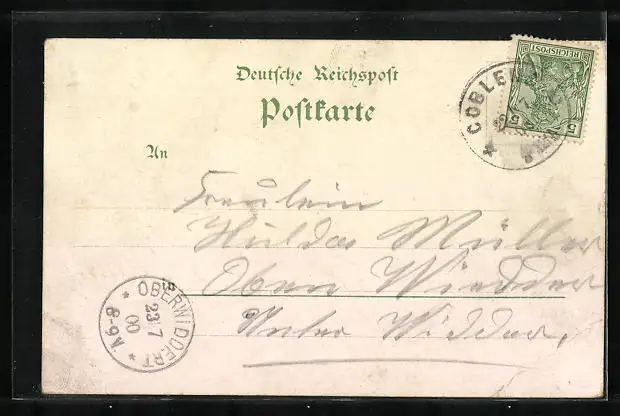 Deutsche Reichspost
Postkarte
An
Fräulein
Hulda Müller
in Ober Widder
Unter Widder.
COBLE
REICHSPOST
5 5
OBERWIDDERT
23 7
00
8-9 V